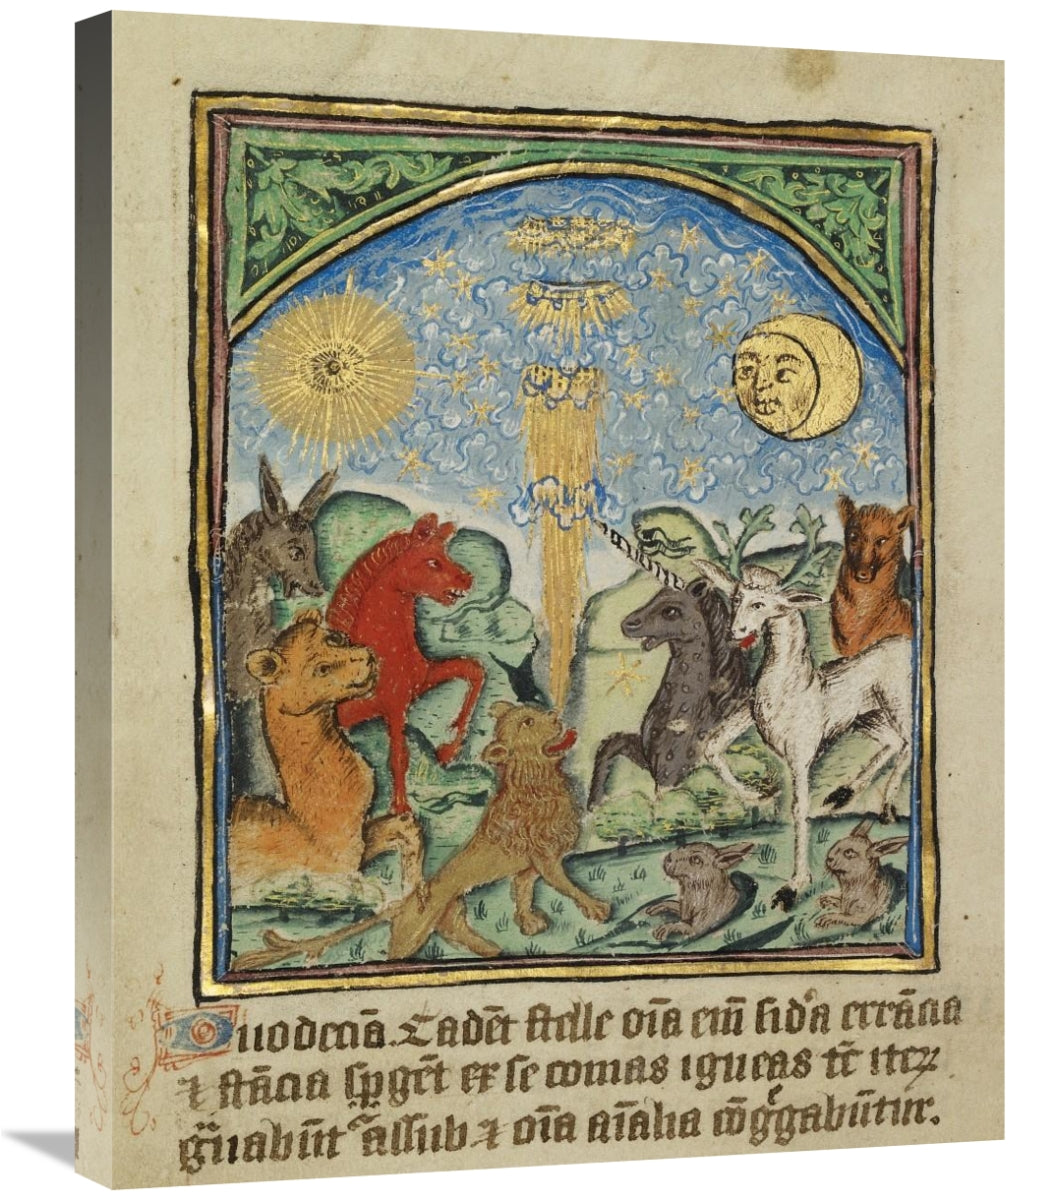 Duodeciā. Cadēt stelle oīa eīm sidʼa errācia
⁊ stācia spgēt ex se comas igneas tē iteꝝ
gn̄abūt assub ⁊ oīa aīalia cōggabūtur.